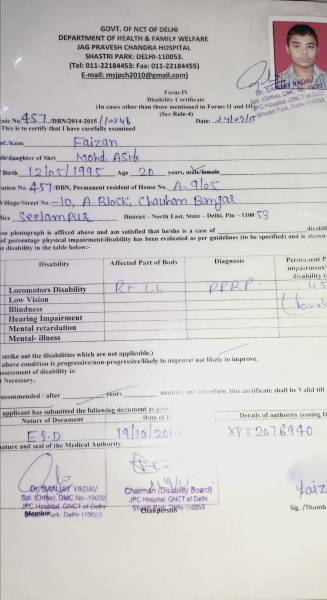 GOVT. OF NCT OF DELHI
DEPARTMENT OF HEALTH & FAMILY WELFARE
JAG PRAVESH CHANDRA HOSPITAL
SHASTRI PARK: DELHI-110053.
(Tel: 011-22184453: Fax: 011-22184455)
E-mail: msjpch2010@gmail.com)
Form-IV
Disability Certificate
(In cases other than those mentioned in Forms II and III)
(See Rule-4)
Dr. SANJAY YADAV
Spl. (Ortho), DMC No.
JPC Hospital, GNCT of
Shastri Park, Delhi-110053
cate No. 457 /DBN/2014-2015 Date:
This is to certify that I have carefully examined
mt./Kum Faizan
/daughter of Shri Mohd. Asif
Birth 12/05/1995 Age 20 years, male/female
ration No. 457/DBN, Permanent resident of House No. A-9/05
Village/Street No. -10, A. Block, Chauhan Bangar
ffice Seelampur District - North East, State - Delhi, Pin - 1100 53
se photograph is affixed above and am satisfied that he/she is a case of disabili
of percentage physical impairment/disability has been evaluated as per guidelines (to be specified) and is shown
nt disability in the table below:-
Disability Affected Part of Body Diagnosis Permanent P
impairment/
disability (
Locomotors Disability Rt LL PPRP 45
Low Vision
Blindness
Hearing Impairment
Mental retardation
Mental- illness
strike out the disabilities which are not applicable.)
above condition is progressive/non-progressive/likely to improve/ not likely to improve.
assessment of disability is:
t Necessary,
ecommended / after years months, and therefore, this certificate shall be Valid till
applicant has submitted the following document as proo
Nature of Document Date of Details of authority issuing
E.I.D 19/10/20 XPT2076940
nature and seal of the Medical Authority.
Dr. SANJAY YADAV
Spl. (Ortho), DMC No.-19032
JPC Hospital, GNCT of Delhi
Shastri Park, Delhi-110053
Member
Chairman (Disability Board)
JPC Hospital, GNCT of Delhi
Shastri Park, Delhi-110053.
Chairperson
Faiz
Sig./Thumb